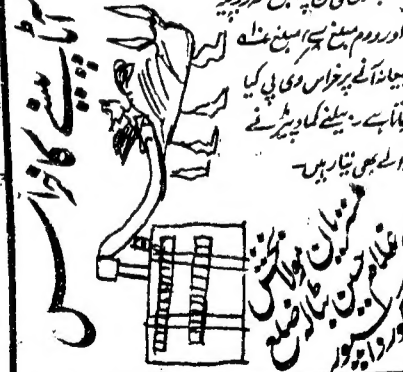 آٹا پیسنے کا خراس
اور دوم مبلغ
بیعانہ آنے پر خراس وی پی کیا
جاتا ہے۔ بیلنے کماد پیڑنے
والے بھی تیار ہیں۔
مستریان مولا بخش
غلام حسین بٹالہ ضلع
گورداسپور